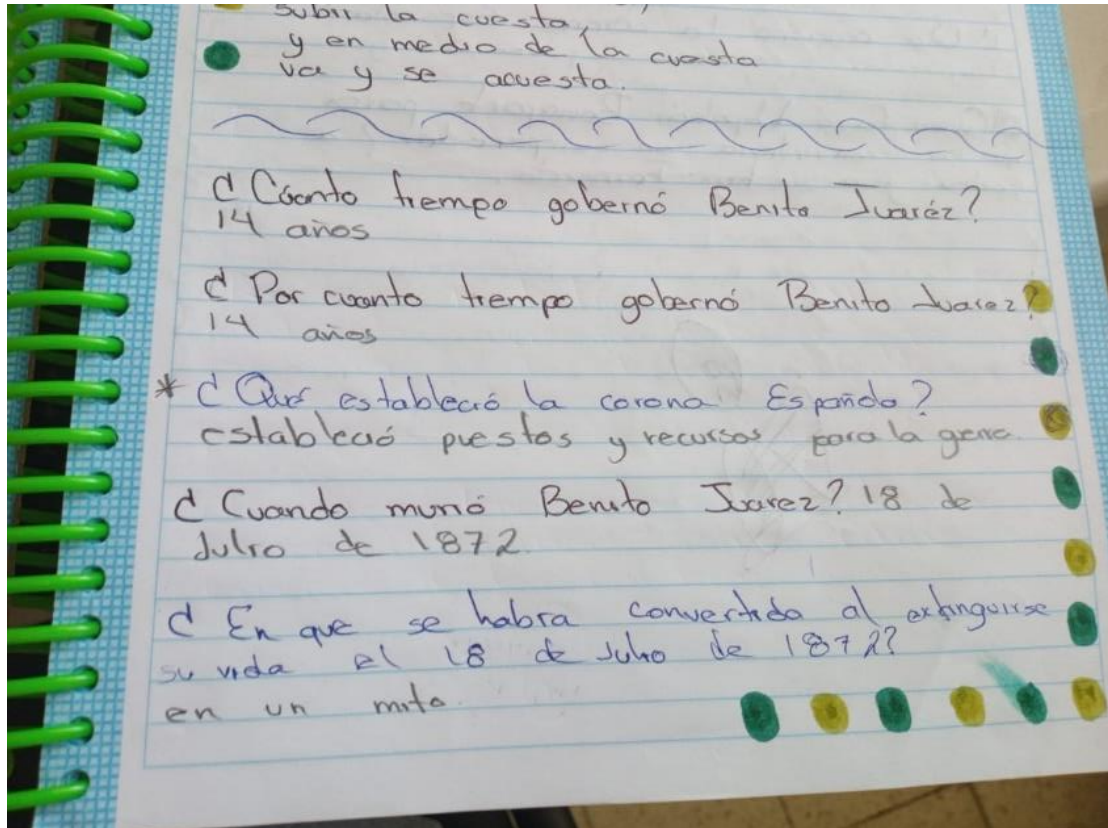 subir la cuesta,
y en medio de la cuesta
va y se acuesta.
¿Cuanto tiempo gobernó Benito Juaréz?
14 años
¿Por cuanto tiempo gobernó Benito Juarez?
14 años
* ¿Qué estableció la corona Española?
estableció puestos y recursos para la gene
¿Cuando murió Benito Juarez? 18 de
Julio de 1872.
¿En que se habra convertido al extinguirse
su vida el 18 de Julio de 1872?
en un mito.